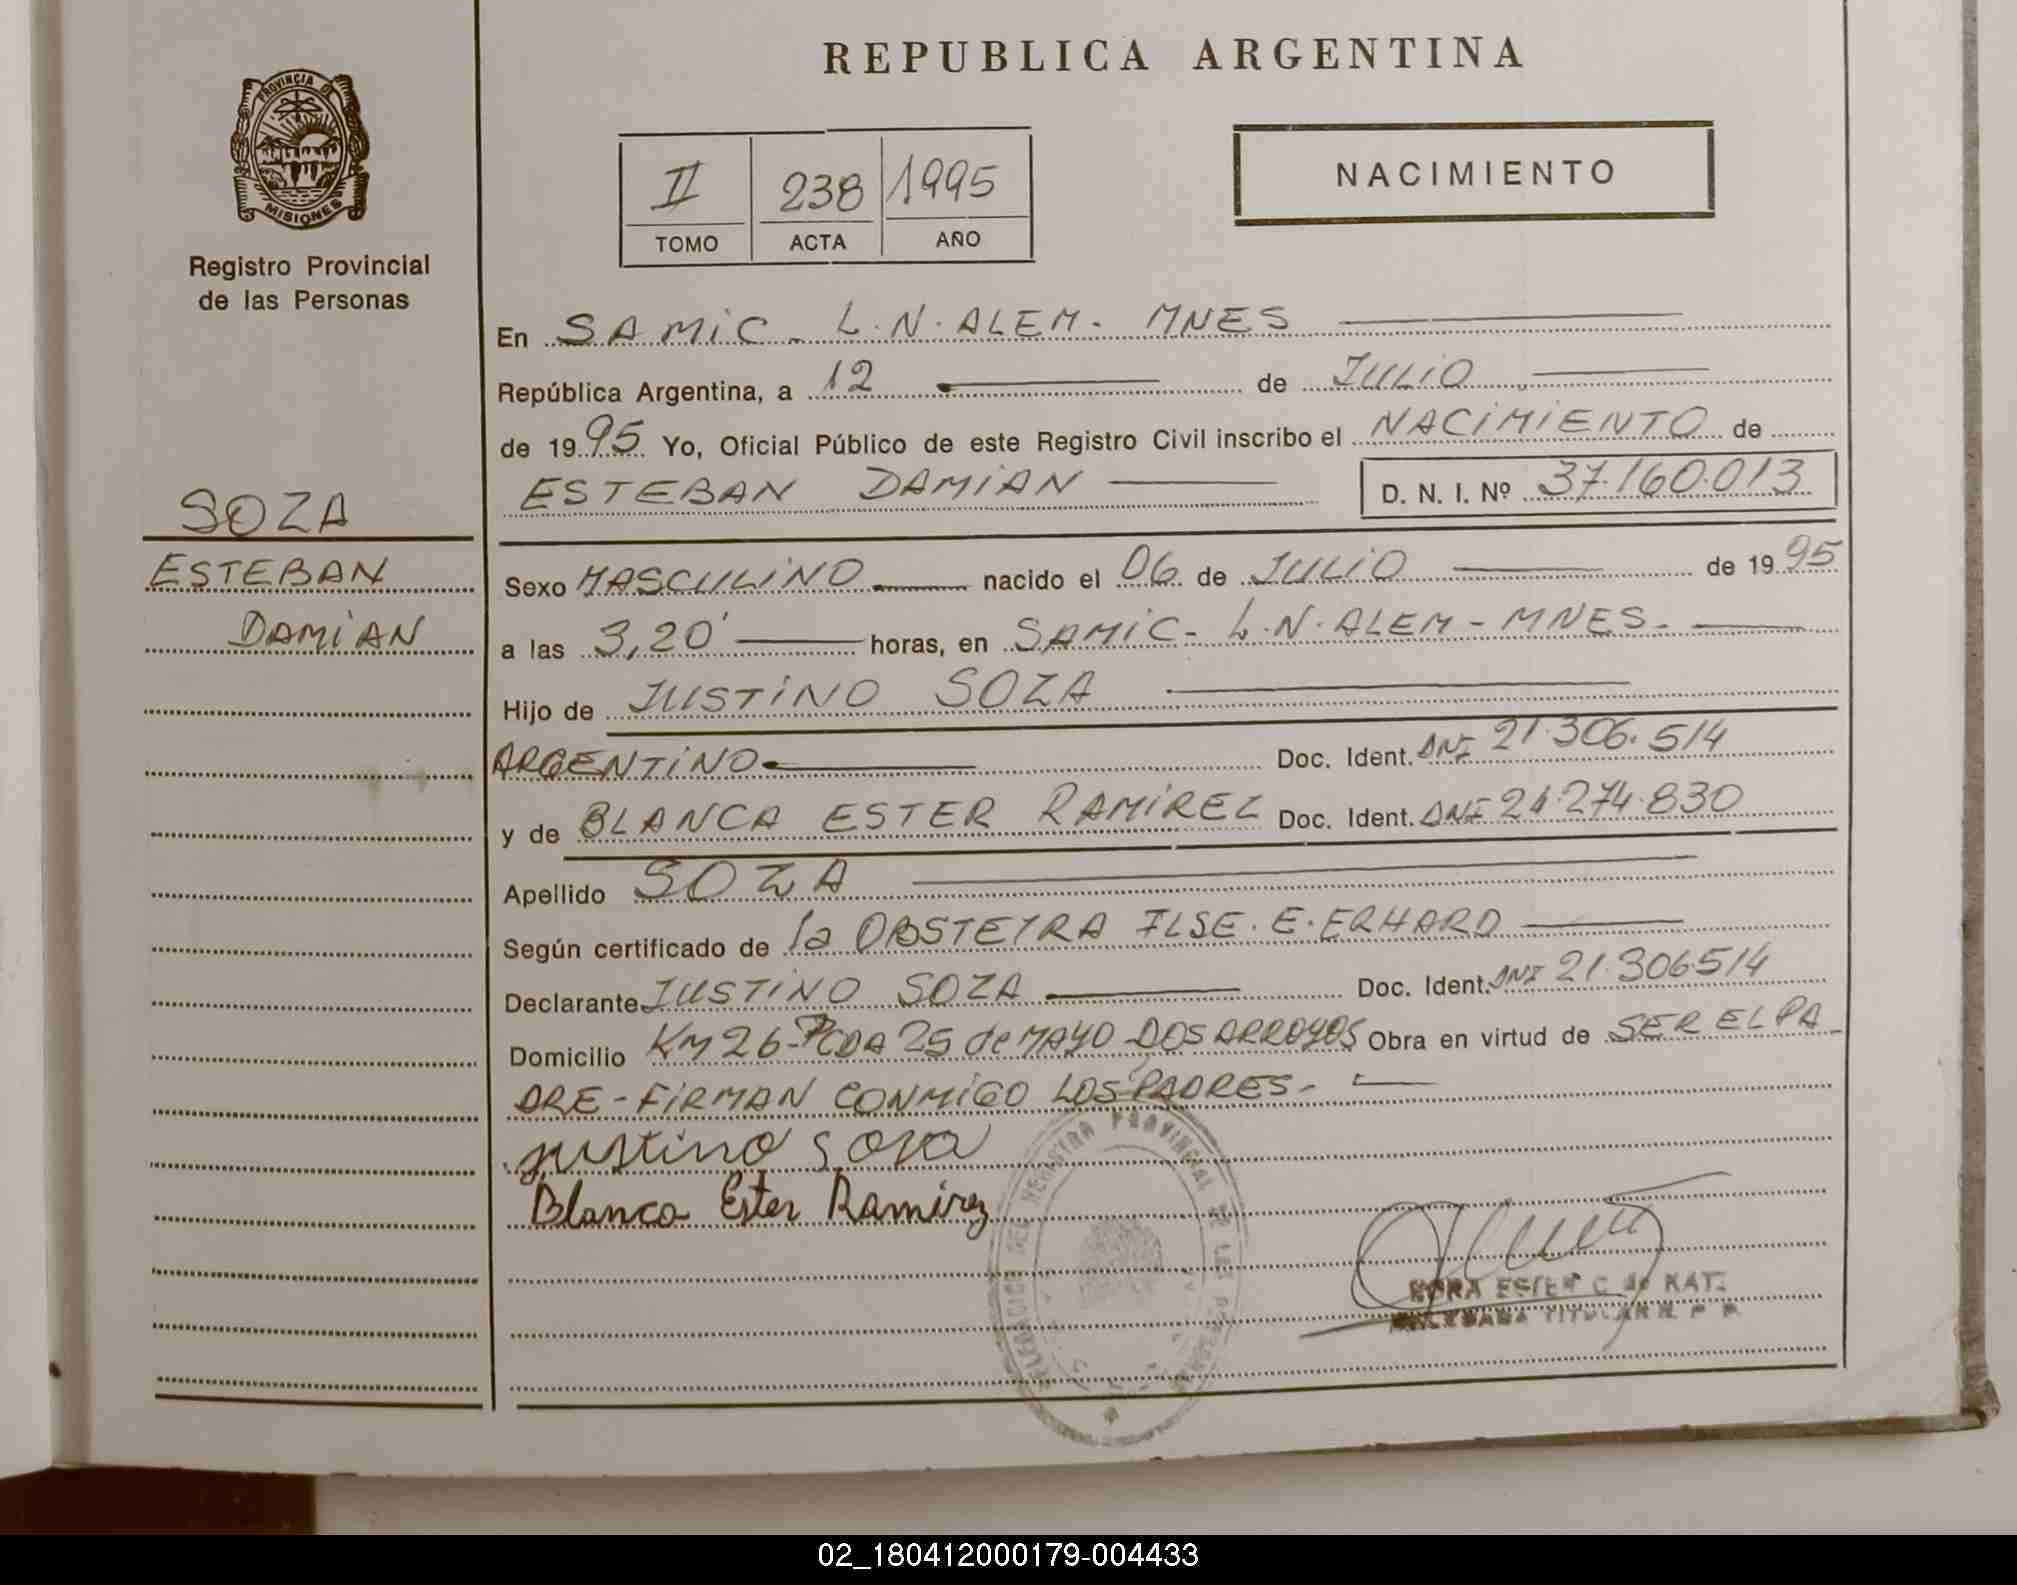 REPUBLICA ARGENTINA
PROVINCIA DE
MISIONES
Registro Provincial
de las Personas
II 238 1995
TOMO ACTA AÑO
NACIMIENTO
En SAMIC. L.N.ALEM. MNES
República Argentina, a 12 de JULIO
de 1995 Yo, Oficial Público de este Registro Civil inscribo el NACIMIENTO de
ESTEBAN DAMIAN D. N. I. Nº 37.160.013
SOZA
ESTEBAN
DAMIAN
Sexo MASCULINO nacido el 06 de JULIO de 1995
a las 3,20' horas, en SAMIC- L.N.ALEM-MNES-
Hijo de JUSTINO SOZA
ARGENTINO Doc. Ident. DNI 21.306.514
y de BLANCA ESTER RAMIREZ Doc. Ident. DNI 24.274.830
Apellido SOZA
Según certificado de la OBSTETRA ILSE.E.ERHARD
Declarante JUSTINO SOZA Doc. Ident. DNI 21.306514
Domicilio KM26-PCDA 25 de MAYO DOS ARROYOS Obra en virtud de SER EL PA-
DRE-FIRMAN CONMIGO LOS PADRES-
justino soza
Blanca Ester Ramirez
DELEGACION DEL REGISTRO PROVINCIAL DE LAS PERSONAS
ESTER C. de KATZ
TITULAR R. P. P.
02_180412000179-004433